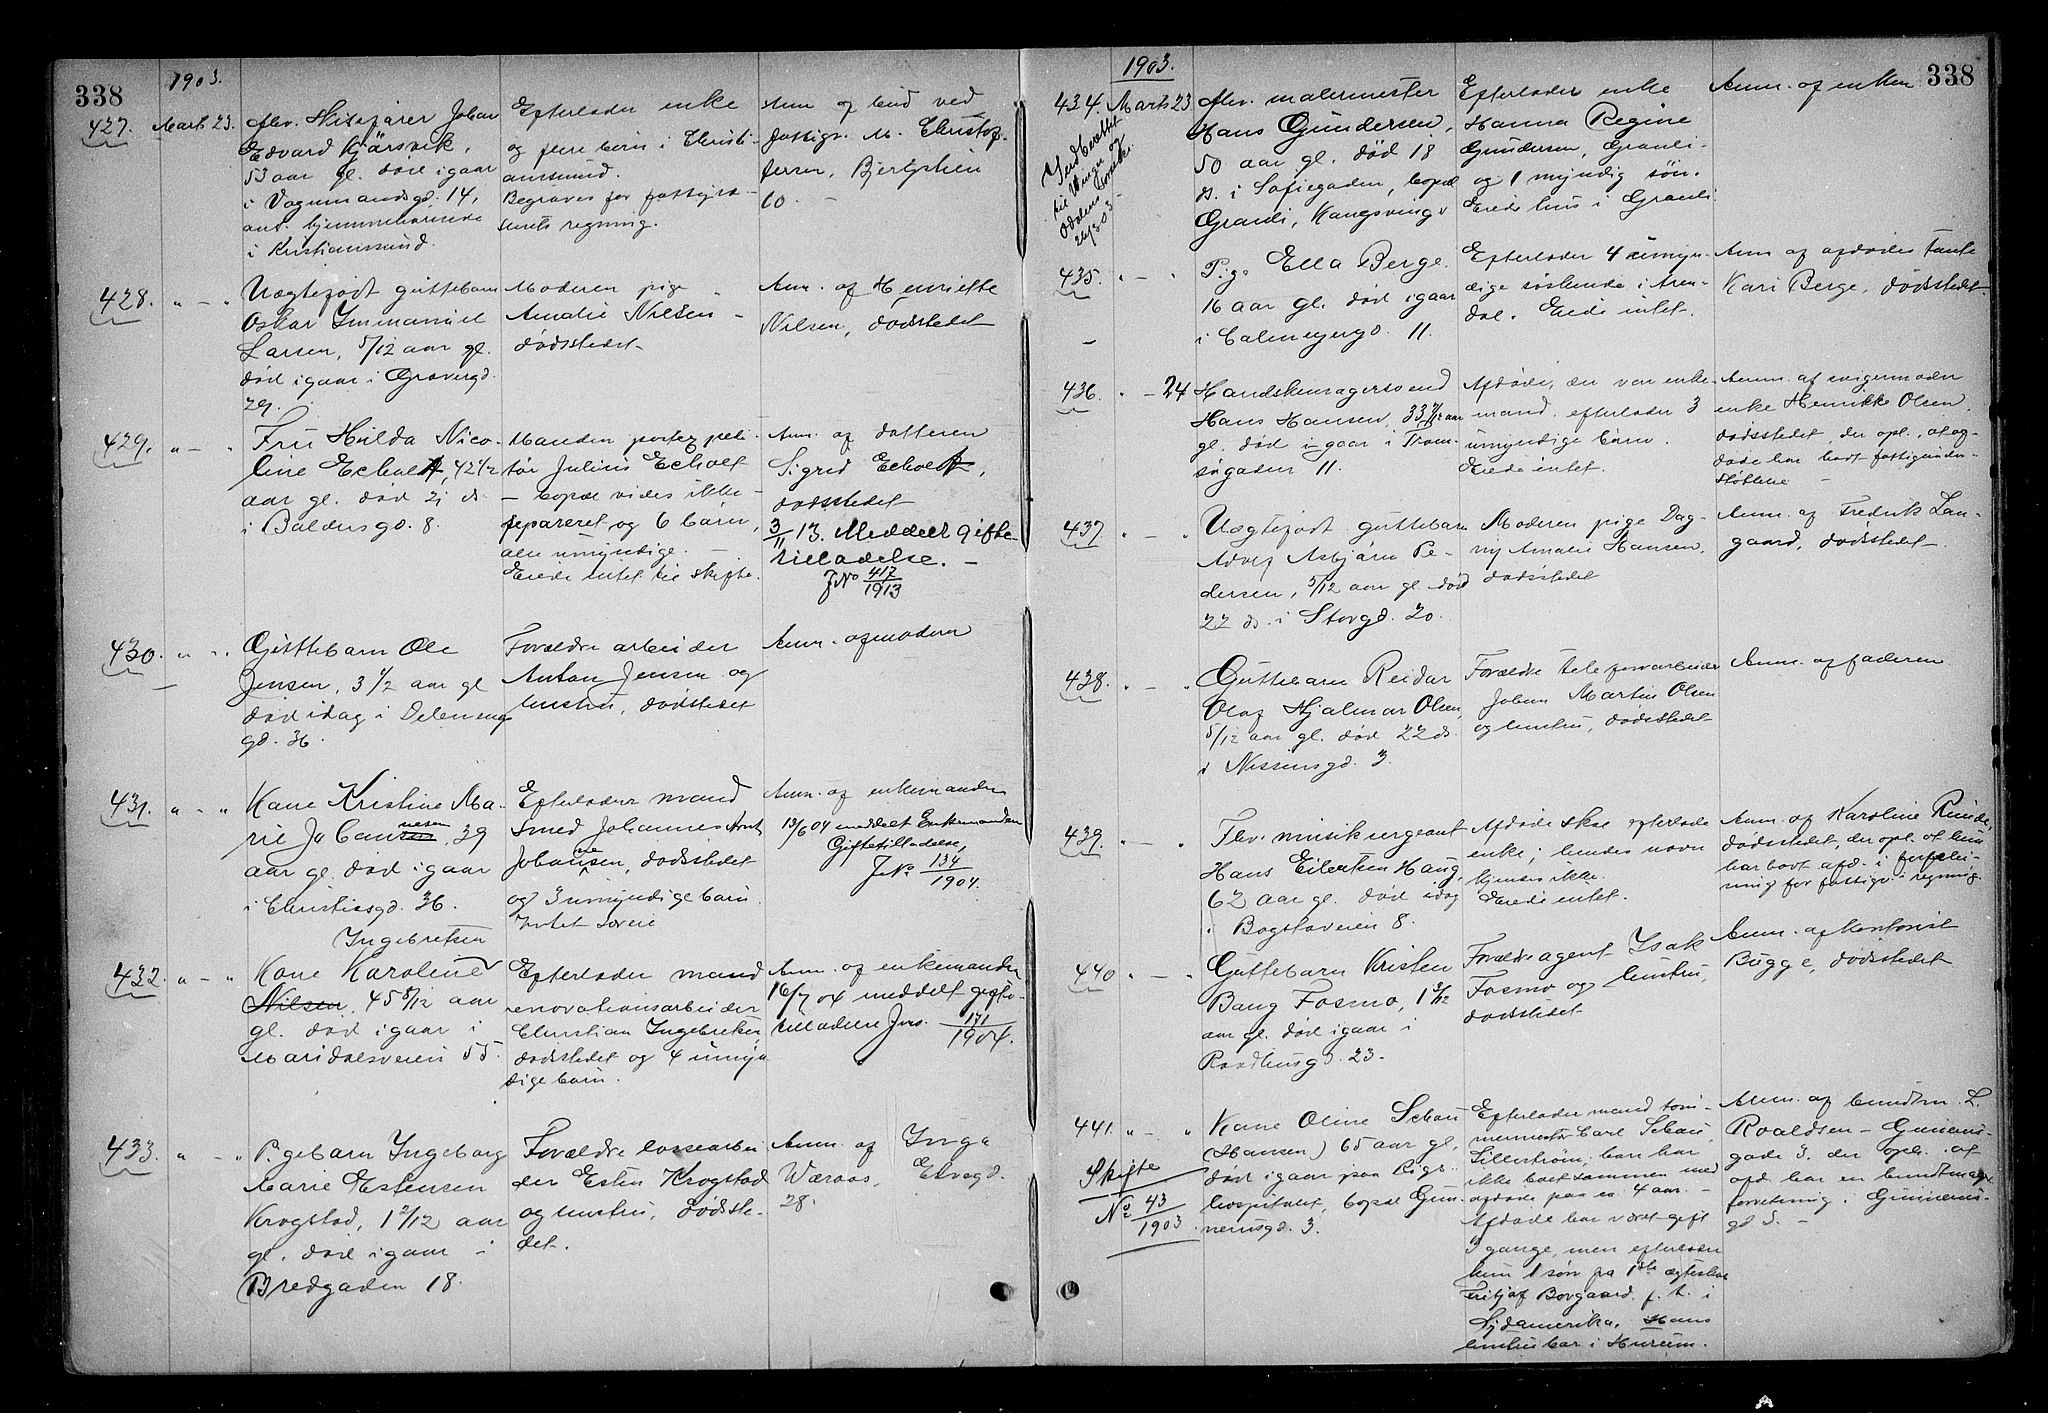 338
1903.
427. Marts 23.
Edvard Kjärsvik,
53 aar gl. død igaar
i Vognmandsgd. 14,
i Kristianssund.
Efterlader enke
og flere børn i Christi-
anssund.
Begraves for fattigvæ-
senets regning.
Anm. af bud ved
fattigv. M. Christof-
fersen,
10. -
428. " - "
Uægtefødt guttebarn
Oskar Immanuel
Larsen, 5/12 aar gl.
død igaar i Gravergd.
29.
Moderen pige
Amalie Nilsen -
dødsstedet -
Anm. af Henriette
Nilsen, dødsstedet
429. " - "
Fru Hulda Nico-
line Echolt, 42 1/2
aar gl. død 21 ds.
i Baldersgd. 8.
Manden
Julius Echolt
- bopæl vides ikke -
separeret og 6 børn,
alle umyndige. -
Eiede intet til skifte.
Anm. af datteren
Sigrid Echolt,
dødsstedet
3/11 13. Meddelt gifte-
tilladelse. -
J No 417/1913
430. " - "
Guttebarn Ole
Jensen, 3 1/2 aar gl
død idag i Deleneng
gd. 36.
Forældre arbeider
Anton Jensen og
hustru, dødsstedet
Anm. af moderen
431. " - "
Kone Kristine Ma-
rie Johannesen, 39
aar gl. død igaar
i Christiesgd. 36.
Efterlader mand
smed Johannes Arnt
Johannesen, dødsstedet
og 3 umyndige børn
Intet
Anm. af enkemanden
13/6 04 meddelt Enkemanden
Giftetilladelse,
J No 134/1904.
432. " - "
Ingebretsen
Kone Karoline
Nilsen, 45 8/12 aar
gl. død igaar i
Maridalsveien 55.
Efterlader mand
renovationsarbeider
Christian Ingebretsen,
dødsstedet og 4 umyn-
dige børn.
Anm. af enkemanden
16/7 04 meddelt gifte-
tilladelse Jno. 171/1904.
433. " - "
Pigebarn Ingeborg
Marie Estensen
Krogstad, 1 2/12 aar
gl. død igaar i
Bredgaden 18.
Forældre lossearbei
der Esten Krogstad
og hustru, dødsste-
det.
Anm. af Inga
Waraas, Elvegd.
28.
1903.
338
434. Marts 23
Indberettet
til Vinger og
Odalens Sorenskr.
26/3 03
fhv. malermester
Hans Gundersen,
50 aar gl. død 18
ds. i Sofiegaden, bopæl
Granli, Kongsvinger
Efterlader enke
Hanna Regine
Gundersen, Granli
og 1 myndig søn.
Eiede hus i Granli
Anm. af enken
435. " - "
Pige Ella Berge.
16 aar gl. død igaar
i Calmeyergd. 11.
Efterlader 4 umyn-
dige søskende i Aren-
dal. Eiede intet.
Anm af afdødes tante
Kari Berge, dødsstedet.
436. " - 24
Handskemagersvend
Hans Hansen, 33 7/12 aar
gl. død igaar i Trom-
søgaden 11.
Afdøde, der var enke-
mand, efterlader 3
umyndige børn.
Eiede intet.
Anm. af svigermoder
enke Henrikke Olsen,
dødsstedet, der opl. at af-
døde har havt fattigunder-
støttelse -
437 " - "
Uægtefødt guttebarn
Adolf Asbjørn Pe-
dersen, 5/12 aar gl. død
22 ds. i Storgd. 20.
Moderen pige Dag-
ny Amalie Hansen,
dødsstedet
Anm. af Fredrik Lan-
gaard, dødsstedet
438. " - "
Guttebarn Reidar
Olaf Hjalmar Olsen,
5/12 aar gl. død 22 ds.
i Nissensgd. 3.
Forældre telefonarbeider
Johan Martin Olsen
og hustru, dødsstedet
Anm. af faderen
439. " - "
Fhv. musiksergeant
Hans Eilertsen Haug,
62 aar gl. død idag
i Bogstaveien 8.
Afdøde skal efterlade
enke, hendes navn
kjendes ikke.
Eiede intet.
Anm. af Karoline Runde,
dødsstedet, der opl. at hun
har havt afd. i forplei-
ning for fattigv. regning.
440 " - "
Guttebarn Kristen
Bang Fosmo, 1 3/12
aar gl. død igaar i
Raadhusgd. 23.
Forældre agent Isak
Fosmo og hustru,
dødsstedet
Anm. af kontorist
Bugge, dødsstedet
441. " - "
Skifte
No 43/1903
Kone Oline Schau
(Hansen) 65 aar gl.
død igaar paa Rigs-
hospitalet, bopæl Gun-
nerusgd. 3.
Efterlader mand tøm-
mermester Carl Schau,
Lillestrøm; han har
ikke boet sammen med
afdøde paa ca. 4 aar. -
Afdøde har været gift
3 gange, men efterlader
kun 1 søn fra 1ste ægteskab
Fritjof Borgaard f. t. i
Sydamerika. Hans
hustru bor i Hurum.
Anm. af bundtm. L.
Roaldsen - Gunnerus-
gade 3. der opl. at
afd. har en bundtmager
forretning, Gunnerus-
gd 5. -